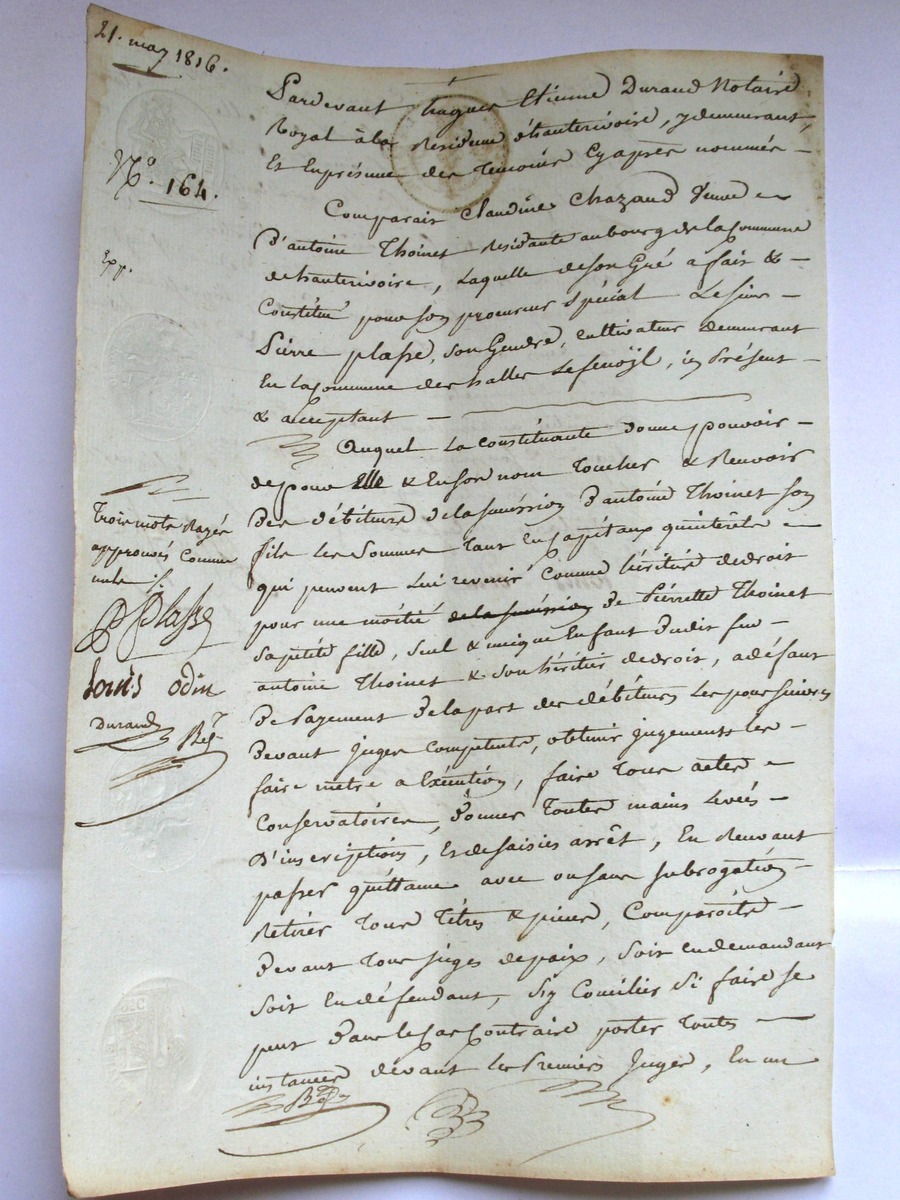 21. may 1816.
N.° 164.
Exp.
Pardevant Etienne Durand Notaire
Royal à la Residence d'hauterivoire, y demeurant,
Et En présence des Temoins Cy après nommés –
Comparait Claudine Chazaud veuve
D'antoine Thoinet residante au bourg de la Commune
de hauterivoire, Laquelle de son Gré a fait &
Constitué pour son procureur Spécial Le sieur –
Pierre plasse, son Gendre, cultivateur demeurant
En la Commune des halles Lefenoÿl, ici Présent –
& acceptant —
Auquel La constituante donne pouvoir –
de pour Elle & En son nom Toucher & Recevoir
Des débiteurs de la succéssion D'antoine Thoinet son
fils les Sommes Tant En Capitaux qu'intérêts
qui peuvent Lui revenir Comme héritière de droit
pour une moitié de la succéssion De Pierrette Thoinet
sa petite fille, seul & unique Enfant Dudit feu –
antoine Thoinet & son héritier de droit, a défaut
De Payement De la part des débiteurs Les poursuivre
Devant Juges Compétents, obtenir jugements les
faire mettre a Exécution, faire Tous actes
Conservatoires, Donner Toutes mains Levées –
D'inscriptions, Et de saisies arrêt, En Recevant
passer quittance avec ou sans subrogation –
Retirer Tous Titres & pièces, Comparoitre –
Devant Tous juges de paix, soit en demandant
soit En défendant, s'y Concilier Si faire se
peut Dans le Cas Contraire porter Toutes —
instances devant les Premiers Juges, En un
Trois mots Rayés
approuvés Comme
nuls
P Plasse
Louis odin
Durand